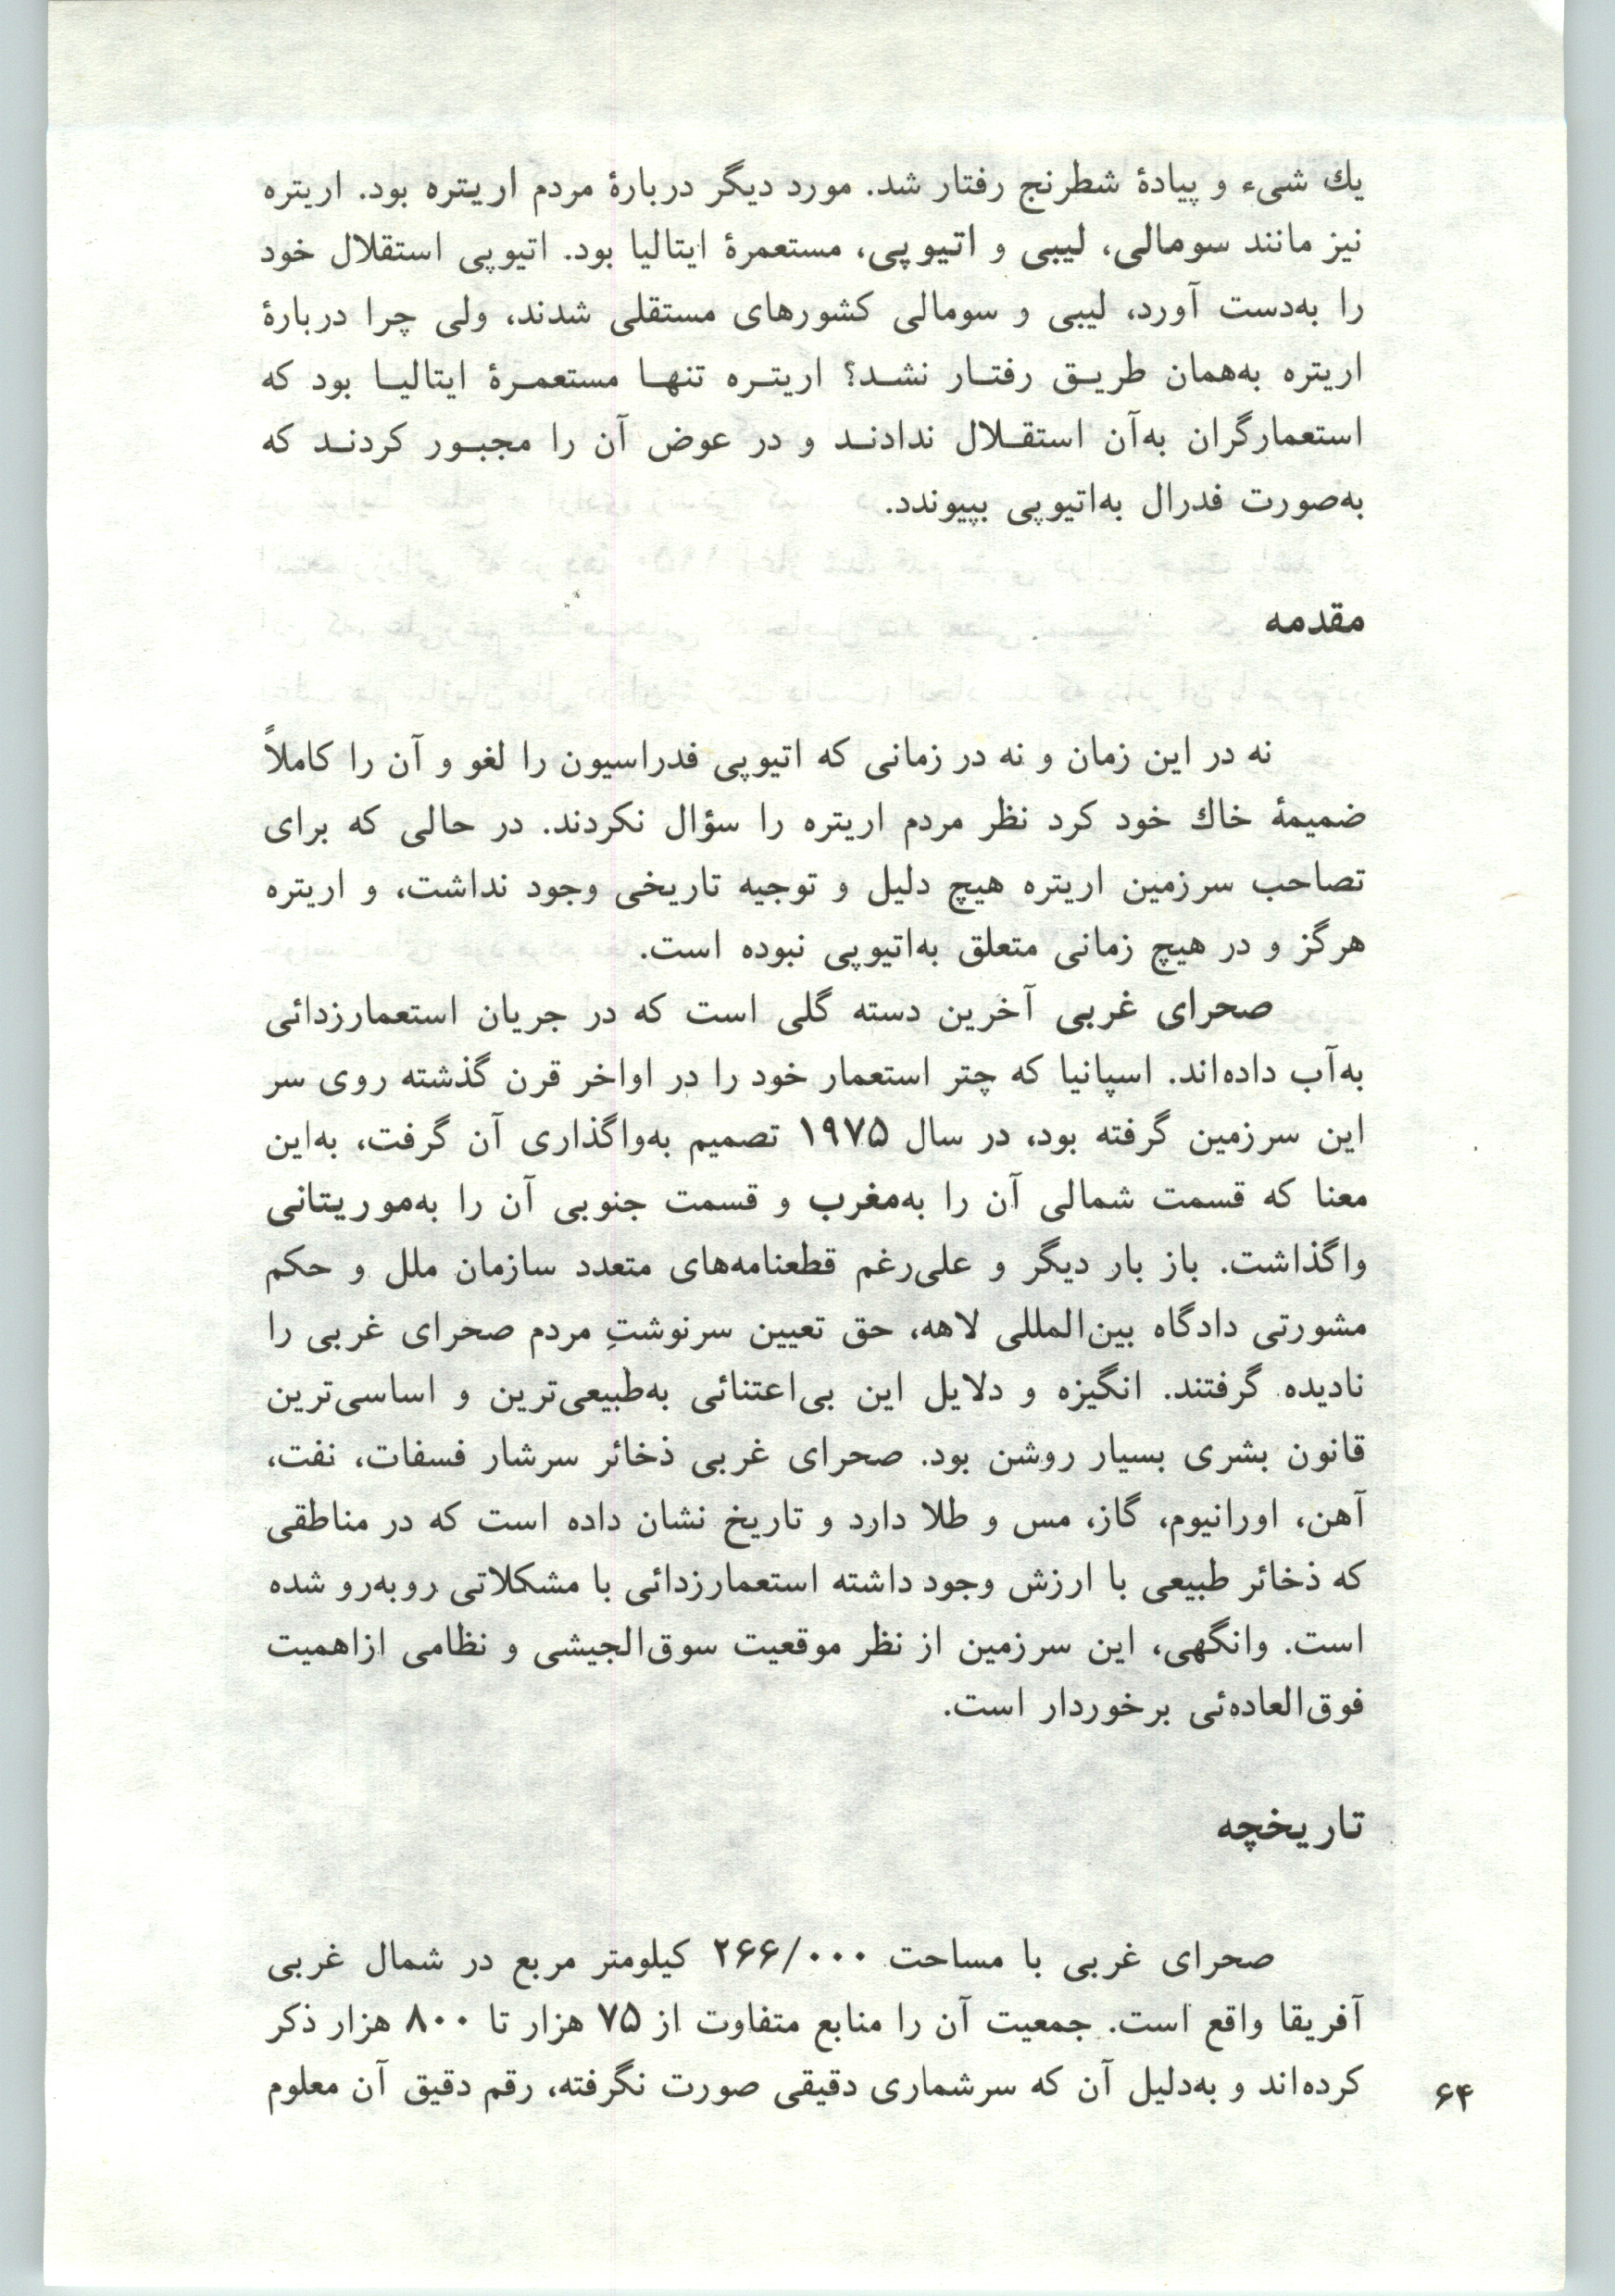 یك شیء و پیادهٔ شطرنج رفتار شد. مورد دیگر دربارهٔ مردم اریتره بود. اریتره
نیز مانند سومالی، لیبی و اتیوپی، مستعمرهٔ ایتالیا بود. اتیوپی استقلال خود
را به‌دست آورد، لیبی و سومالی کشورهای مستقلی شدند، ولی چرا دربارهٔ
اریتره به‌همان طریـق رفتـار نشـد؟ اریتـره تنهـا مستعمـرهٔ ایتالیـا بود که
استعمارگران به‌آن استقـلال ندادنـد و در عوض آن را مجبـور کردنـد که
به‌صورت فدرال به‌اتیوپی بپیوندد.
مقدمه
نه در این زمان و نه در زمانی که اتیوپی فدراسیون را لغو و آن را کاملاً
ضمیمهٔ خاك خود کرد نظر مردم اریتره را سؤال نکردند. در حالی که برای
تصاحب سرزمین اریتره هیچ دلیل و توجیه تاریخی وجود نداشت، و اریتره
هرگز و در هیچ زمانی متعلق به‌اتیوپی نبوده است.
صحرای غربی آخرین دسته گلی است که در جریان استعمارزدائی
به‌آب داده‌اند. اسپانیا که چتر استعمار خود را در اواخر قرن گذشته روی سر
این سرزمین گرفته بود، در سال ۱۹۷۵ تصمیم به‌واگذاری آن گرفت، به‌این
معنا که قسمت شمالی آن را به‌مغرب و قسمت جنوبی آن را به‌موریتانی
واگذاشت. باز بار دیگر و علی‌رغم قطعنامه‌های متعدد سازمان ملل و حکم
مشورتی دادگاه بین‌المللی لاهه، حق تعیین سرنوشتِ مردم صحرای غربی را
نادیده گرفتند. انگیزه و دلایل این بی‌اعتنائی به‌طبیعی‌ترین و اساسی‌ترین
قانون بشری بسیار روشن بود. صحرای غربی ذخائر سرشار فسفات، نفت،
آهن، اورانیوم، گاز، مس و طلا دارد و تاریخ نشان داده است که در مناطقی
که ذخائر طبیعی با ارزش وجود داشته استعمارزدائی با مشکلاتی روبه‌رو شده
است. وانگهی، این سرزمین از نظر موقعیت سوق‌الجیشی و نظامی ازاهمیت
فوق‌العاده‌ئی برخوردار است.
تاریخچه
صحرای غربی با مساحت ۲۶۶/۰۰۰ کیلومتر مربع در شمال غربی
آفریقا واقع است. جمعیت آن را منابع متفاوت از ۷۵ هزار تا ۸۰۰ هزار ذکر
کرده‌اند و به‌دلیل آن که سرشماری دقیقی صورت نگرفته، رقم دقیق آن معلوم
۶۴